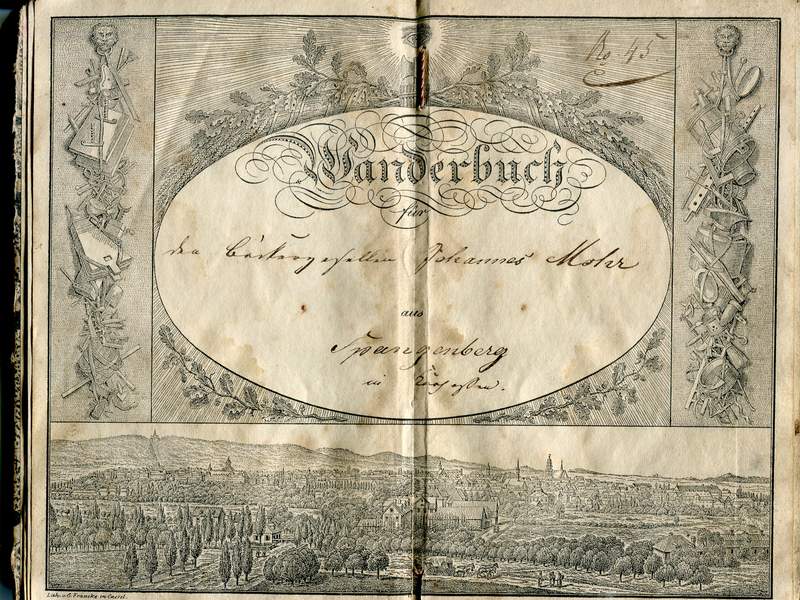 No 45.
Wanderbuch
für
den Bäckergesellen Johannes Mohr
aus
Spangenberg
in Kurhessen.
Lith. v. G. Francke in Cassel.